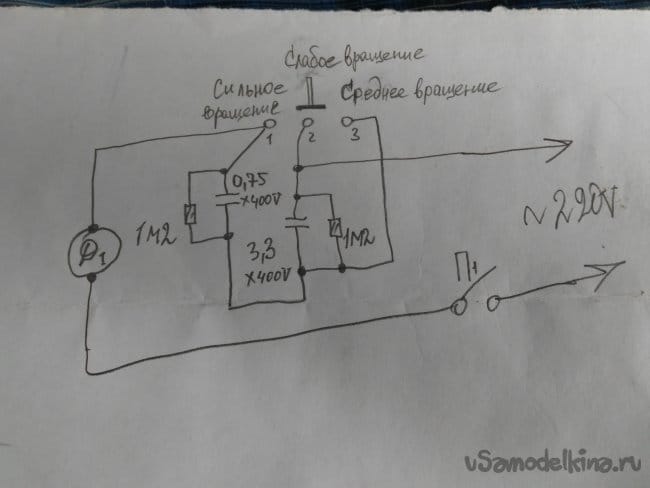 Слабое вращение
Сильное вращение
Среднее вращение
1 2 3
0,75 х400V
1М2
3,3 х400V
1М2
Д1
П1
~220V
vSamodelkina.ru